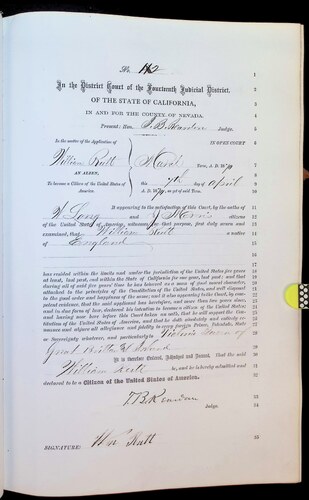 No. 112 1
2
In the District Court of the Fourteenth Judicial District. 3
OF THE STATE OF CALIFORNIA,
IN AND FOR THE COUNTY OF NEVADA. 4
Present: Hon. T. B. Reardon Judge. 5
In the matter of the Application of IN OPEN COURT 6
William Rutt Term, A. D. 18 7
AN ALIEN, 8
To become a Citizen of the United States of this 7th day of April 9
America. A. D. 18 as yet of said Term. 10
11
It appearing to the satisfaction of this Court, by the oaths of 12
Long and J Morris citizens 13
of the United States of America, witnesses for that purpose, first duly sworn and 14
examined, that William Rutt a native
of England 15
has resided within the limits and under the jurisdiction of the United States five years
at least, last past, and within the State of California for one year, last past; and that
during all of said five years' time he has behaved as a man of good moral character,
attached to the principles of the Constitution of the United States, and well disposed
to the good order and happiness of the same; and it also appearing to the Court, by competent
evidence, that the said applicant has heretofore, and more than two years since,
and in due form of law, declared his intention to become a citizen of the United States;
and having now here before this Court taken an oath, that he will support the Constitution
of the United States of America, and that he doth absolutely and entirely renounce
and abjure all allegiance and fidelity to every foreign Prince, Potentate, State
or Sovereignty whatever, and particularly to Victoria Queen of
Great Britain & Ireland
It is therefore Ordered, Adjudged and Decreed, That the said
William Rutt be, and he is hereby admitted and
declared to be a Citizen of the United States of America.
33
T. B. Reardon 34
Judge.
SIGNATURE: Wm Rutt 35